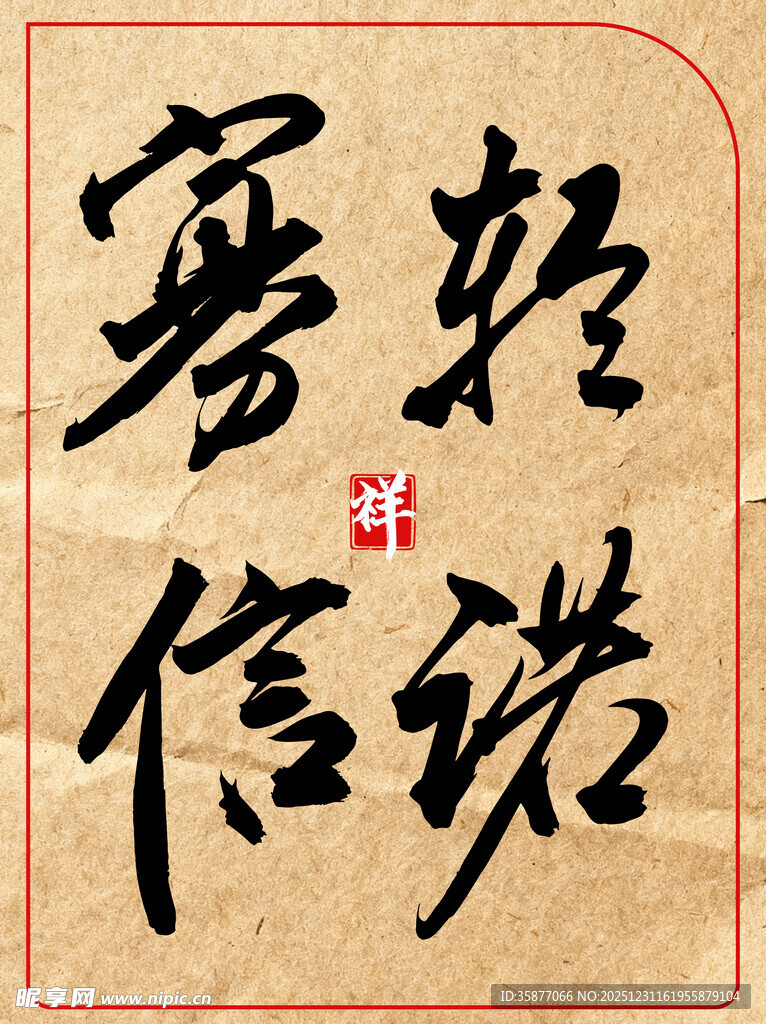 轻诺
寡信
祥
昵享网 www.nipic.cn
ID:35877066 NO:20251231161955879104